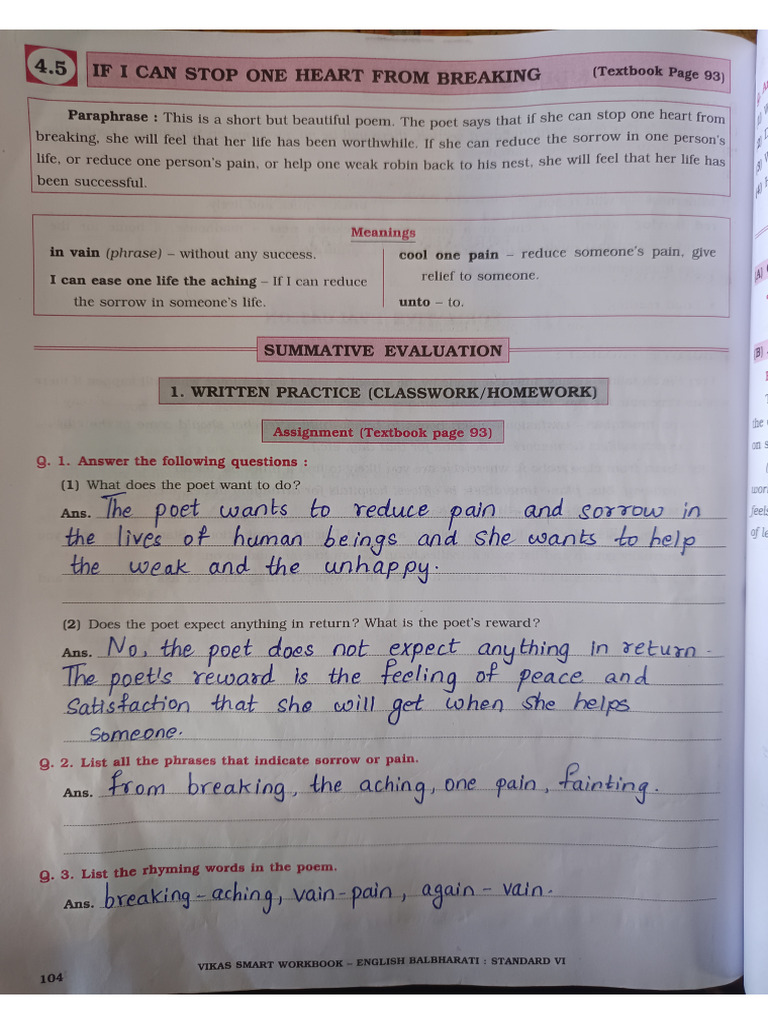 4.5 IF I CAN STOP ONE HEART FROM BREAKING (Textbook Page 93)
Paraphrase : This is a short but beautiful poem. The poet says that if she can stop one heart from
breaking, she will feel that her life has been worthwhile. If she can reduce the sorrow in one person's
life, or reduce one person's pain, or help one weak robin back to his nest, she will feel that her life has
been successful.
Meanings
in vain (phrase) – without any success.
I can ease one life the aching – If I can reduce
the sorrow in someone's life.
cool one pain – reduce someone's pain, give
relief to someone.
unto – to.
SUMMATIVE EVALUATION
1. WRITTEN PRACTICE (CLASSWORK/HOMEWORK)
Assignment (Textbook page 93)
Q. 1. Answer the following questions :
(1) What does the poet want to do?
Ans. The poet wants to reduce pain and sorrow in
the lives of human beings and she wants to help
the weak and the unhappy.
(2) Does the poet expect anything in return? What is the poet's reward?
Ans. No, the poet does not expect anything in return.
The poet's reward is the feeling of peace and
satisfaction that she will get when she helps
someone.
Q. 2. List all the phrases that indicate sorrow or pain.
Ans. from breaking, the aching, one pain, fainting.
Q. 3. List the rhyming words in the poem.
Ans. breaking – aching, vain-pain, again – vain.
VIKAS SMART WORKBOOK – ENGLISH BALBHARATI : STANDARD VI
104